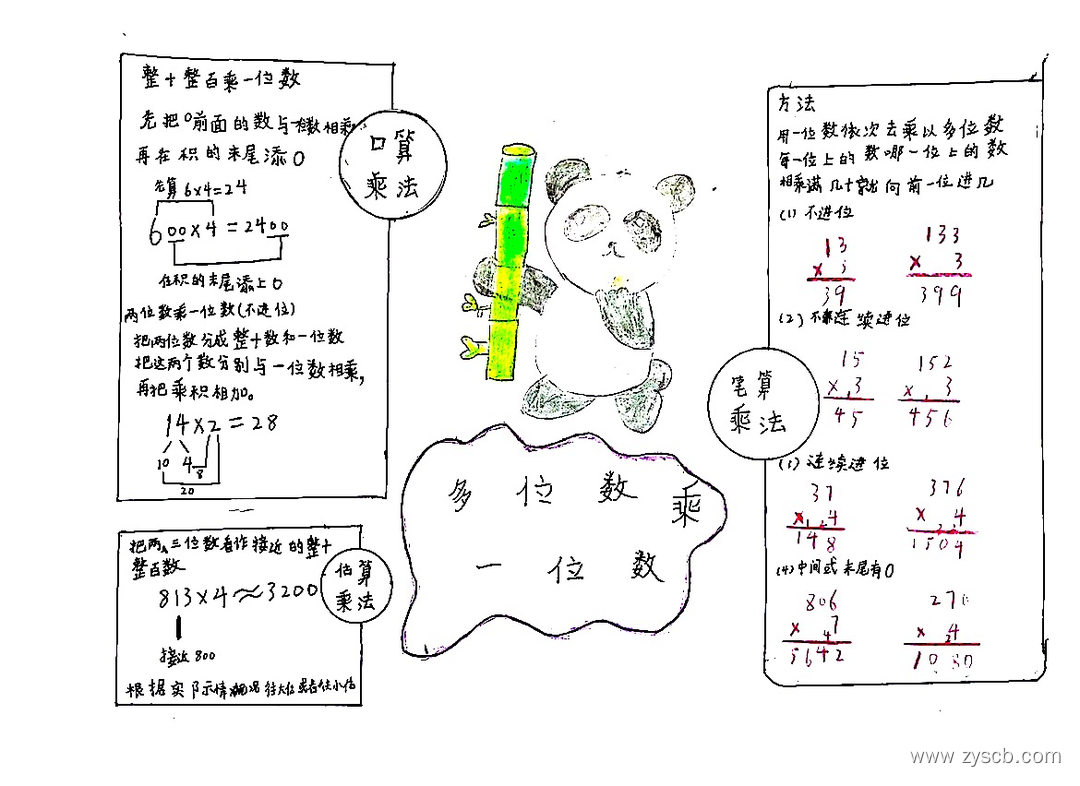 整十整百乘一位数
先把0前面的数与一位数相乘
再在积的末尾添0
先算6x4=24
600x4=2400
在积的末尾添上0
两位数乘一位数(不进位)
把两位数分成整十数和一位数
把这两个数分别与一位数相乘,
再把乘积相加。
14x2=28
10 4 8
20
口算
乘法
把两、三位数看作接近的整十
整百数
813x4≈3200
接近800
根据实际情况往大估或者往小估
估算
乘法
多位数乘
一位数
笔算
乘法
方法
用一位数依次去乘以多位数
每一位上的数哪一位上的数
相乘满几十就向前一位进几
(1)不进位
13 133
x 3 x 3
39 399
(2)不连续进位
15 152
x 3 x 3
45 456
连续进位
37 376
x 4 x 4
148 1504
(4)中间或末尾有0
806 270
x 7 x 4
5642 1080
www.zyscb.com